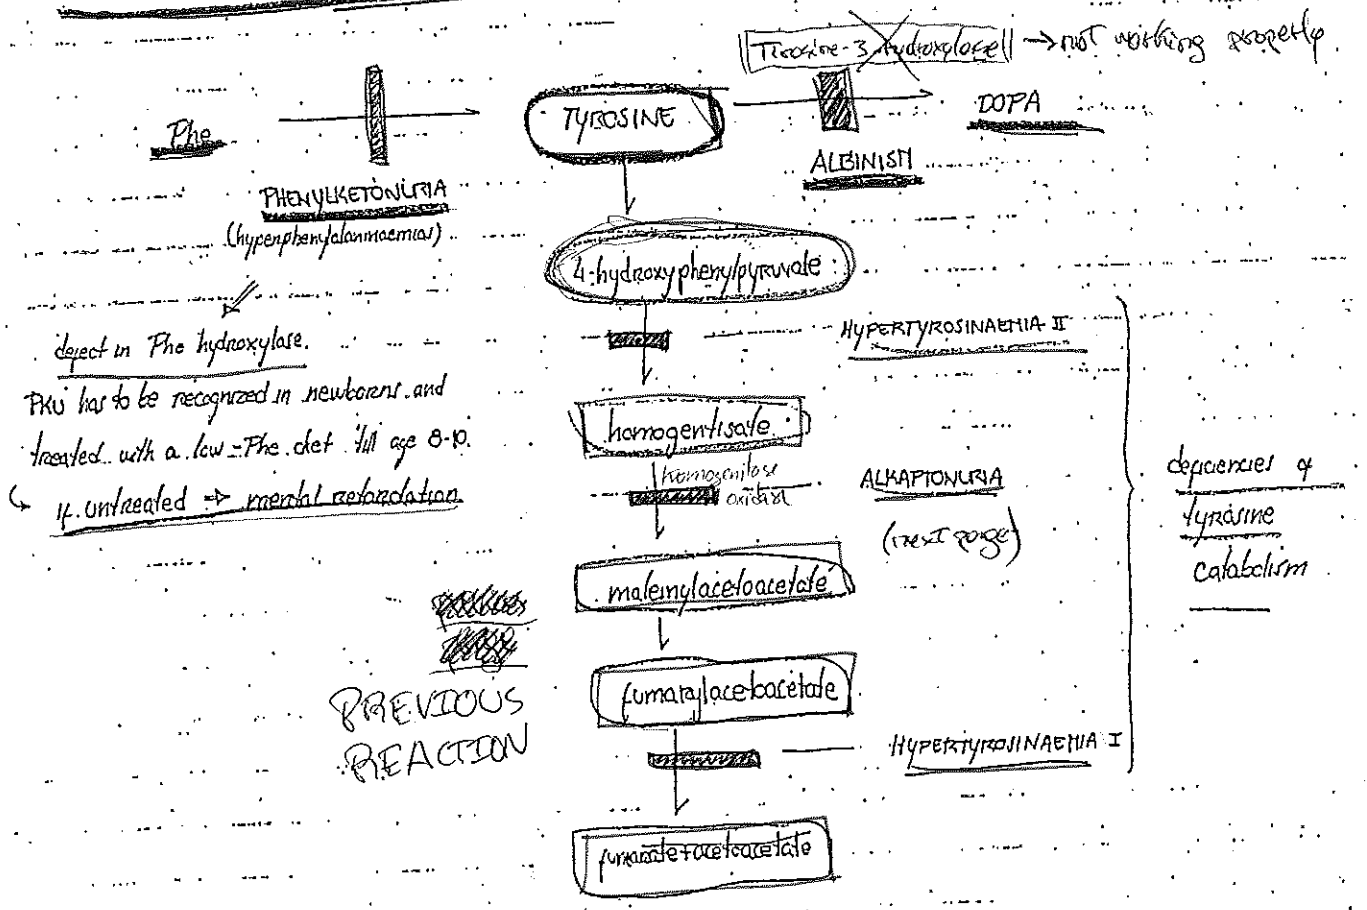 Tirosine-3-hydroxylase → not working properly
Phe
TYROSINE
DOPA
ALBINISM
PHENYLKETONURIA
(hyperphenylalaninaemias)
4-hydroxyphenylpyruvate
HYPERTYROSINAEMIA II
defect in Phe hydroxylase.
PKU has to be recognized in newborns and
treated with a low-Phe diet till age 8-10.
↳ if untreated ⇒ mental retardation
homogentisate
homogenitase
oxidase
ALKAPTONURIA
(next page)
deficiencies of
tyrosine
catabolism
maleinylacetoacetate
fumarylacetoacetate
PREVIOUS
REACTION
HYPERTYROSINAEMIA I
fumarate + acetoacetate